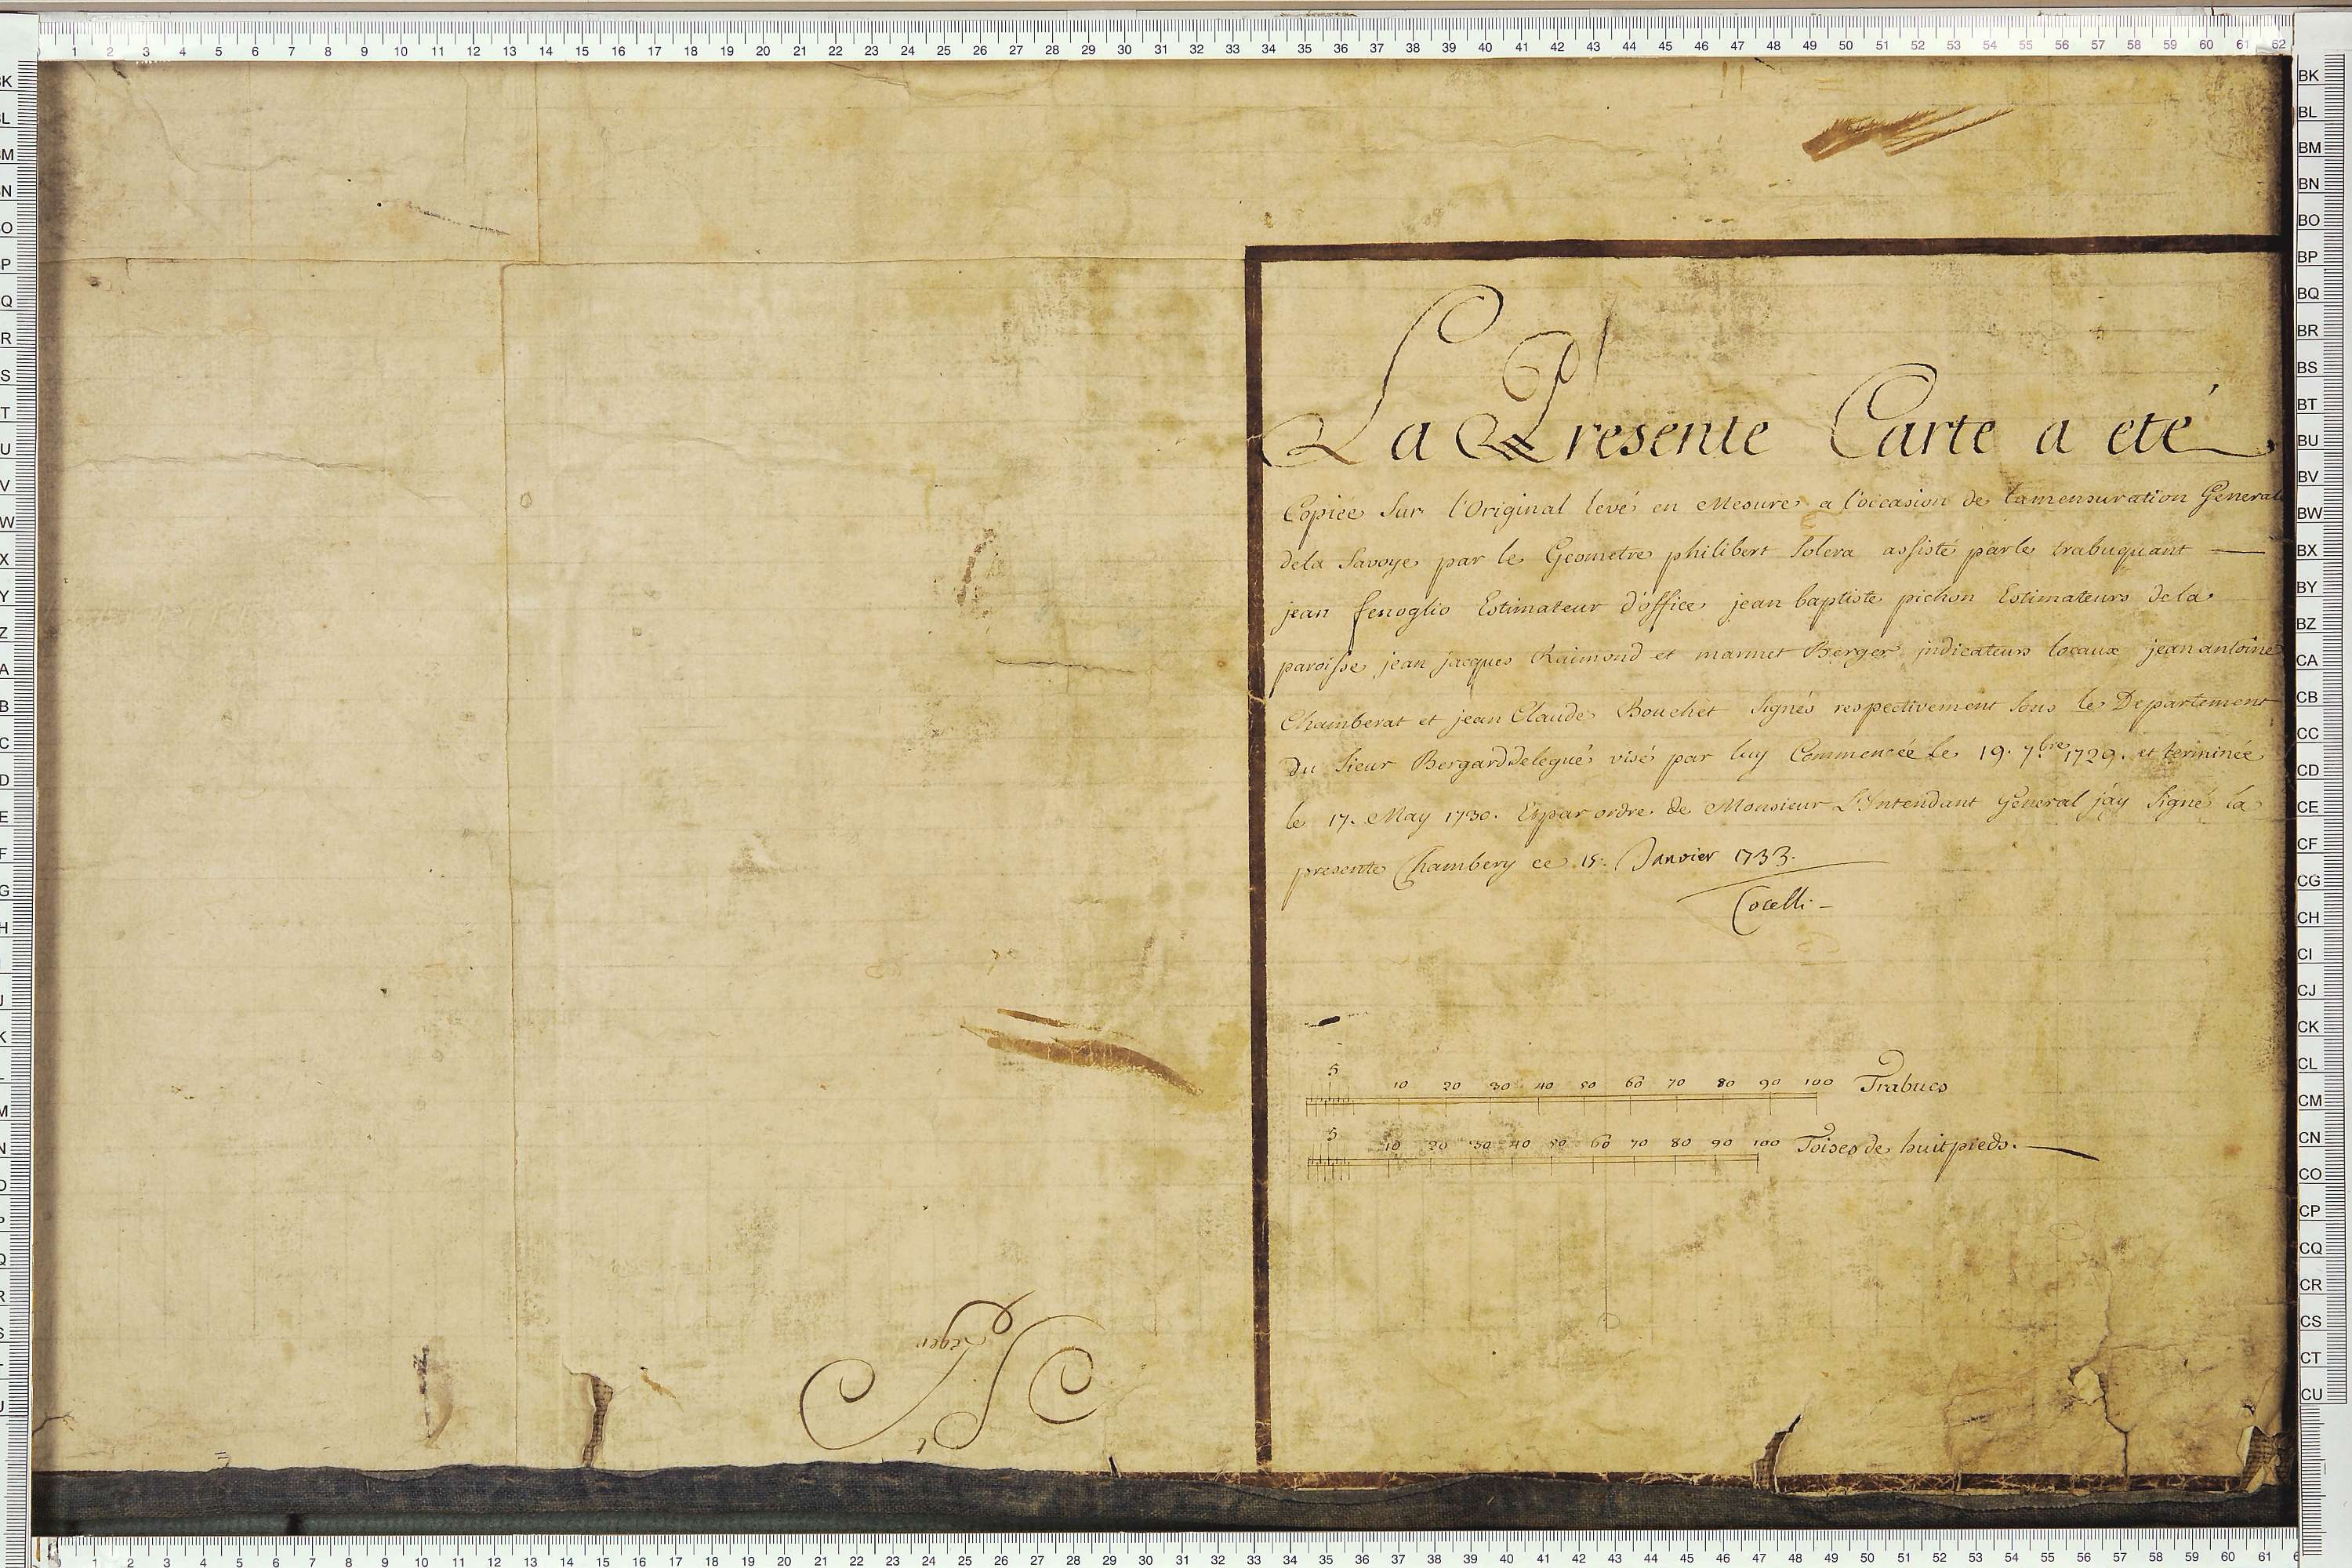 La Presente Carte a eté
Copiée Sur l'Original levé en Mesure a l'occasion de lamensuration Generale
dela Savoye par le Geometre philibert Solera assisté parle trabuquant
jean fenoglio Estimateur d'office jean baptiste pichon Estimateurs dela
paroisse jean jacques Raimond et mamet Berger indicateurs locaux jean antoine
Chamberat et jean Claude Bouchet Signés respectivement Sous le Departement
Du Sieur Bergard Delegué visé par luy Commencée le 19. 7bre 1729. et terminée
le 17. May 1730. Et par ordre de Monsieur L'Intendant General j'ay Signé la
presente Chambery ce 15. Janvier 1733.
Cocelli
5 10 20 30 40 50 60 70 80 90 100 Trabucs
5 10 20 30 40 50 60 70 80 90 100 Toises de huit pieds.